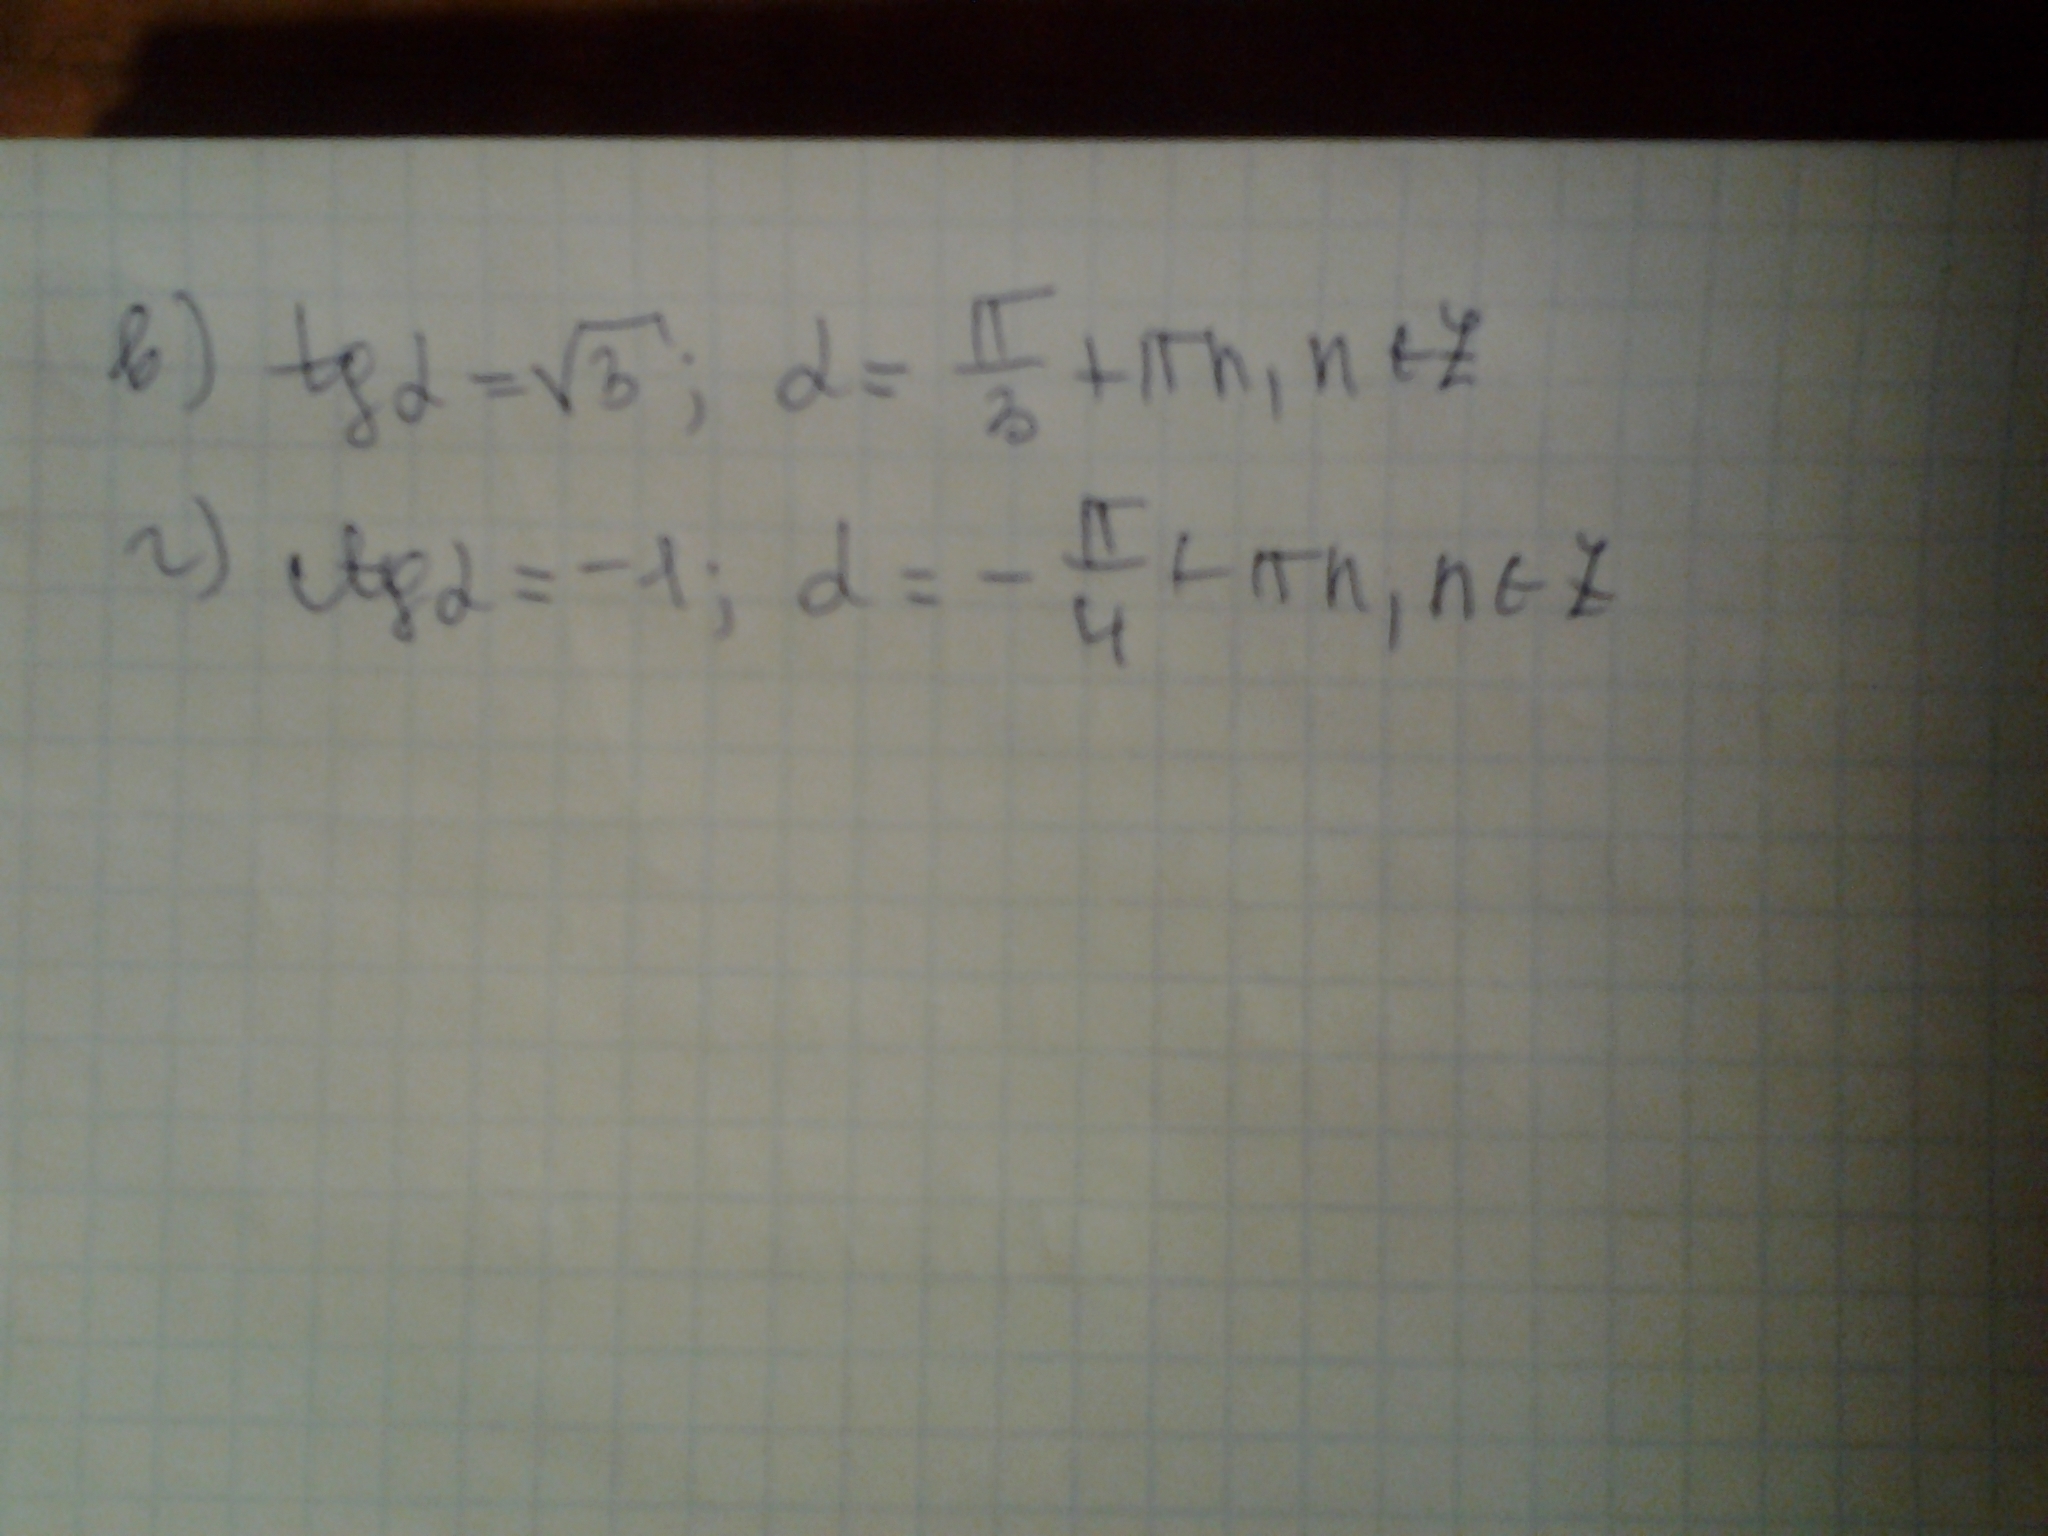 в) tg α = √3; α = π/3 + πn, n ∈ Z
г) ctg α = -1; α = - π/4 + πn, n ∈ Z